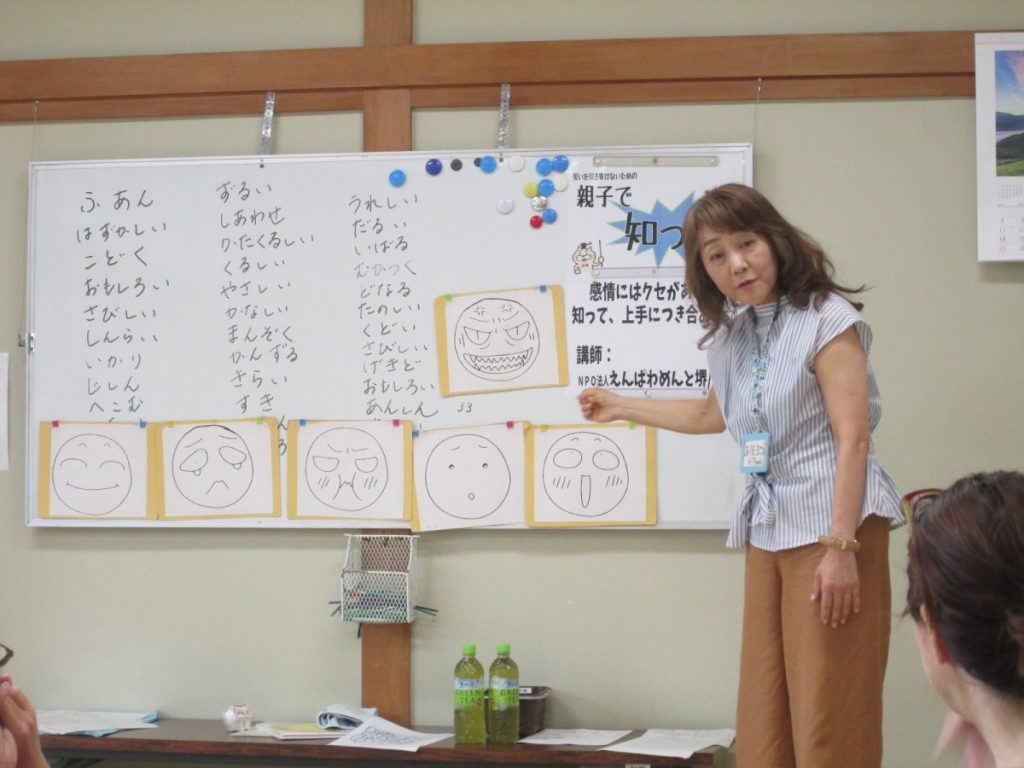 ふあん
はずかしい
こどく
おもしろい
さびしい
しんらい
いかり
じしん
へこむ
ずるい
しあわせ
かたくるしい
くるしい
やさしい
かなしい
まんぞく
かんずる
きらい
すき
うれしい
だるい
いばる
むかつく
どなる
たのしい
くどい
さびしい
げきど
おもしろい
あんしん
33
災いを引き寄せないための
親子で
知っ
感情にはクセがあ
知って、上手につき合
講師:
NPO法人えんぱわめんと堺
GREEN
TEA
GREEN
TEA